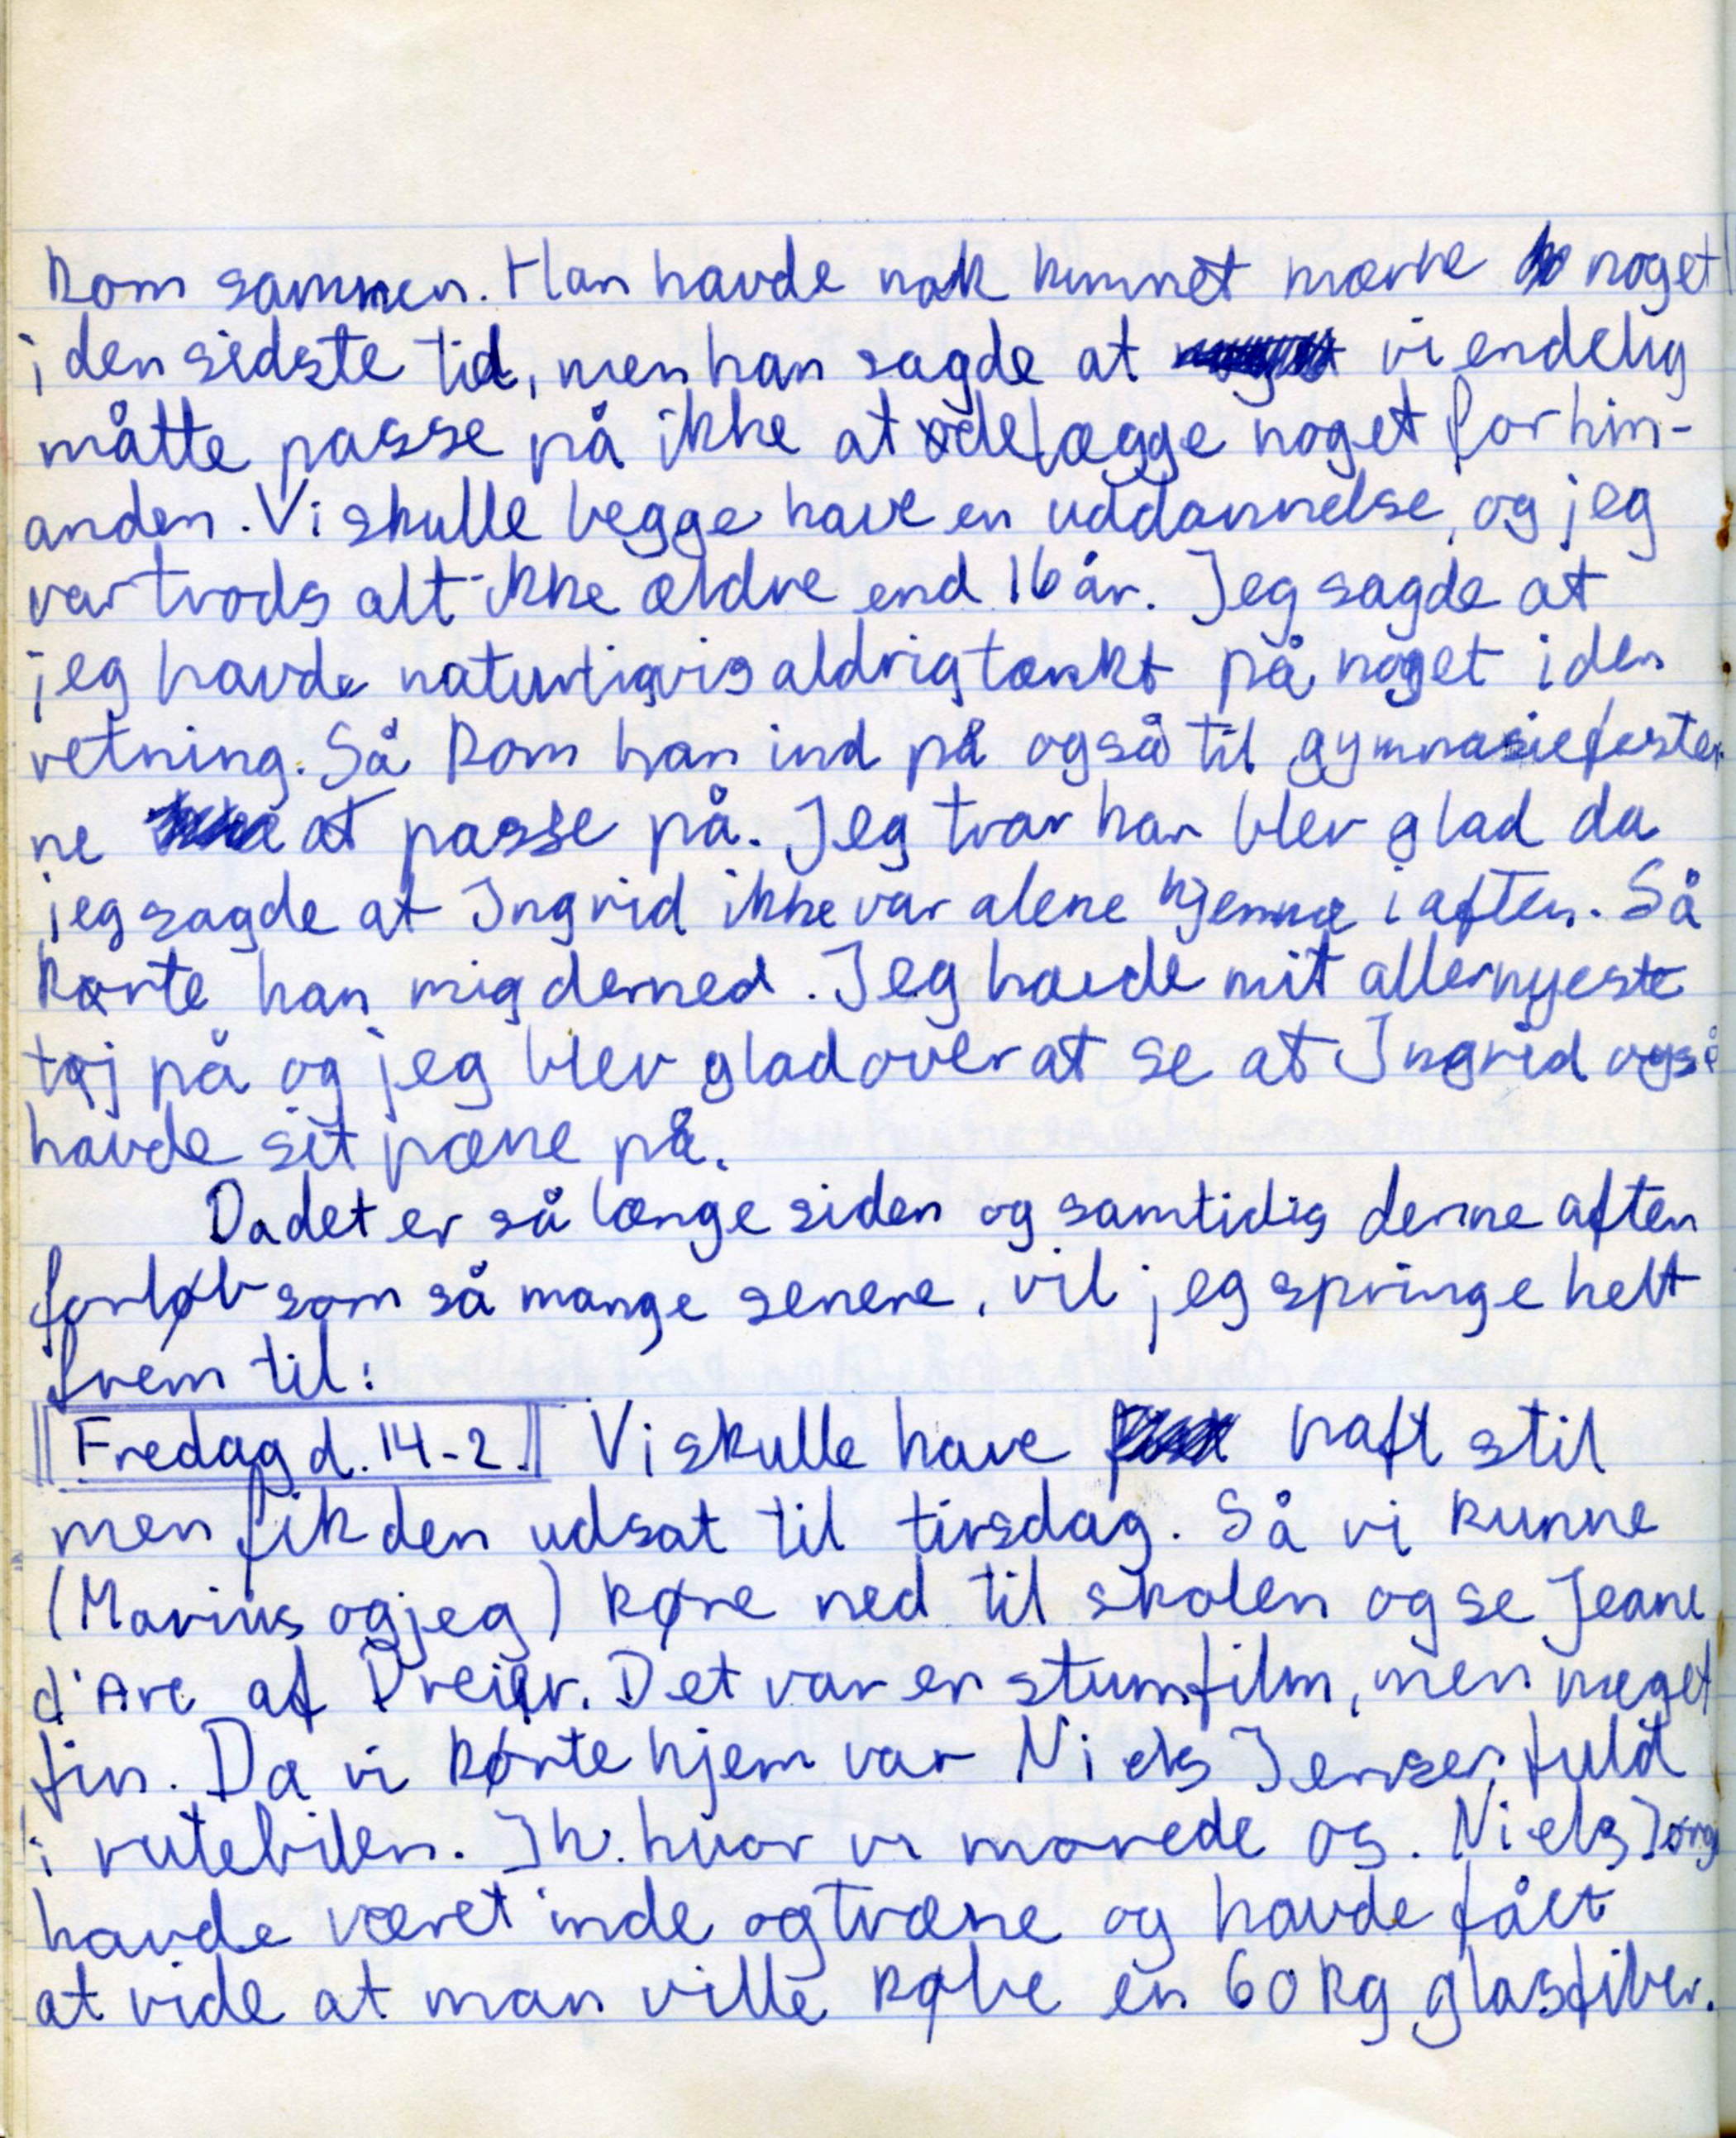 kom sammen. Han havde nok kunnet mærke noget
i den sidste tid, men han sagde at vi endelig
måtte passe på ikke at ødelægge noget for hin-
anden. Vi skulle begge have en uddannelse, og jeg
var trods alt ikke ældre end 16 år. Jeg sagde at
jeg havde naturligvis aldrig tænkt på noget i den
retning. Så kom han ind på også til gymnasiefester-
ne at passe på. Jeg tror han blev glad da
jeg sagde at Ingrid ikke var alene hjemme i aften. Så
kørte han mig derned. Jeg havde mit allernyeste
tøj på og jeg blev glad over at se at Ingrid også
havde sit pæne på.
Da det er så længe siden og samtidig denne aften
forløb som så mange senere, vil jeg springe helt
frem til:
Fredag d. 14-2. Vi skulle have haft stil
men fik den udsat til tirsdag. Så vi kunne
(Marius og jeg) køre ned til skolen og se Jeane
d'Arc af Dreier. Det var en stumfilm, men meget
fin. Da vi kørte hjem var Niels Jensen fuld
i rutebilen. Ih. hvor vi morede os. Niels Jørg
havde været inde og træne og havde fået
at vide at man ville købe en 60 kg glasfiber.